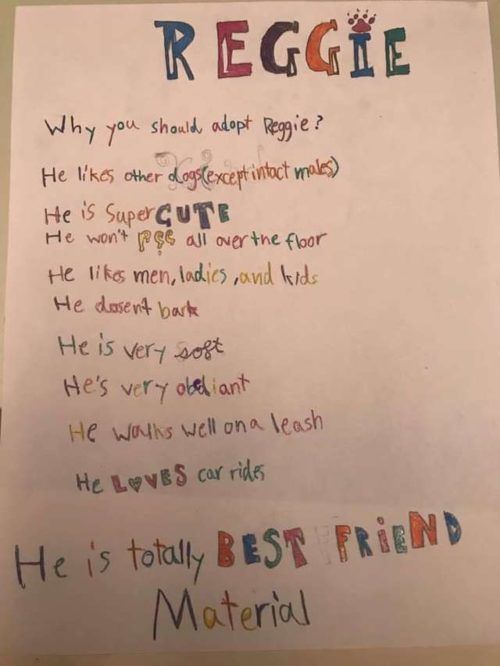 REGGIE
Why you should adopt Reggie?
He likes other dogs(except intact males)
He is Super CUTE
He won't pee all over the floor
He likes men, ladies, and kids
He dosent bark
He is very soft
He's very obediant
He walks well on a leash
He LOVES car rides
He is totally BEST FRIEND
Material